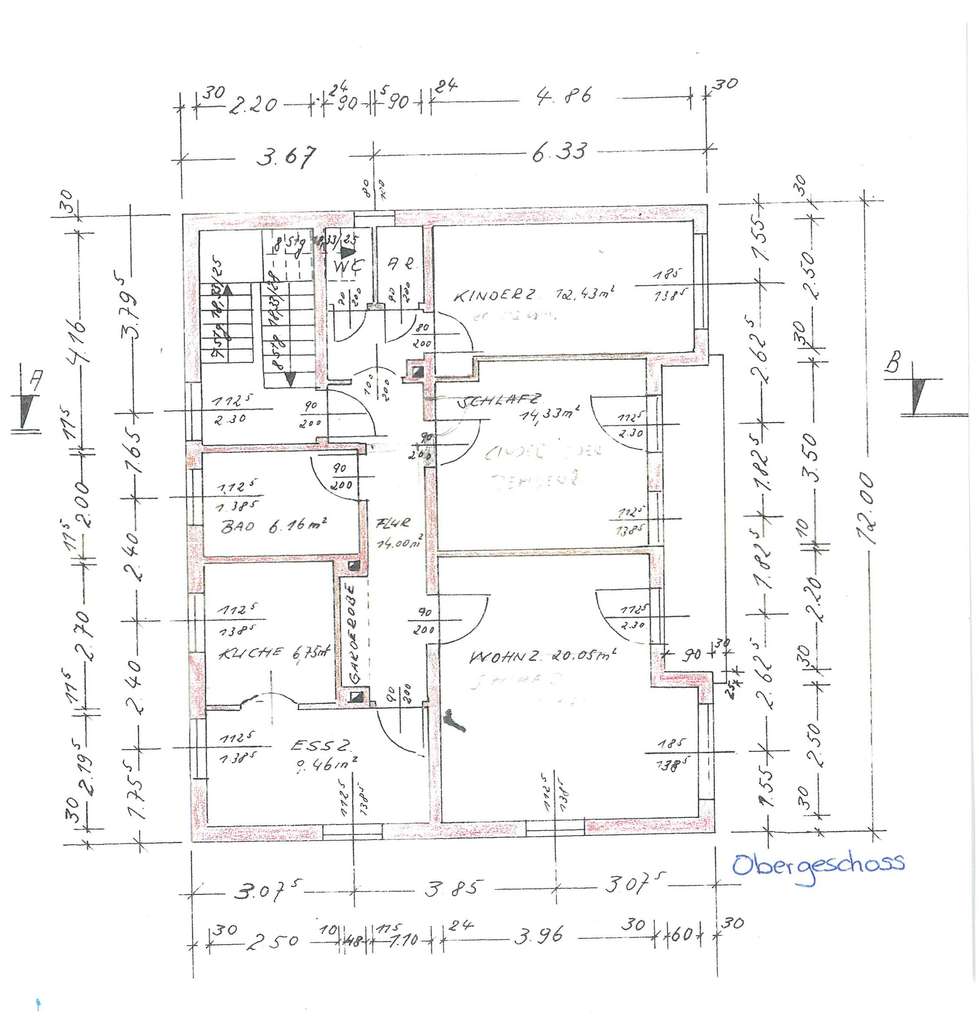 30 2.20 24 90 5 90 24 4.86 30
3.67 6.33
80
30
8 Stg 18,33/25
WC AR
9 Stg 18,33/25
8 Stg 18,33/28
90 200
80 200
KINDERZ. 12,43m²
185 138⁵
80 200
100 200
A
B
SCHLAFZ
14,33m²
112⁵ 2.30
90 200
112⁵ 2.30
90 200
90 200
1.12⁵ 1.38⁵
BAD 6.16m²
FLUR
14.00m²
112⁵ 138⁵
112⁵ 138⁵
KÜCHE 6,75m²
GARDEROBE
90 200
112⁵ 2.30
WOHNZ. 20.05m²
90 30
25
90 200
112⁵ 138⁵
ESSZ.
9.46m²
185 138⁵
112⁵ 138⁵
112⁵ 138⁵
30 4.16 11⁵ 2.00 11⁵ 2.70 11⁵ 2.19⁵ 30
3.79⁵ 1.65 2.40 2.40 1.75⁵
1.55 2.62⁵ 1.82⁵ 1.82⁵ 2.62⁵ 1.55
30 2.50 30 3.50 10 2.20 30 2.50 30
12.00
Obergeschoss
3.07⁵ 3.85 3.07⁵
30 2.50 10 48 11⁵ 1.10 24 3.96 30 60 30